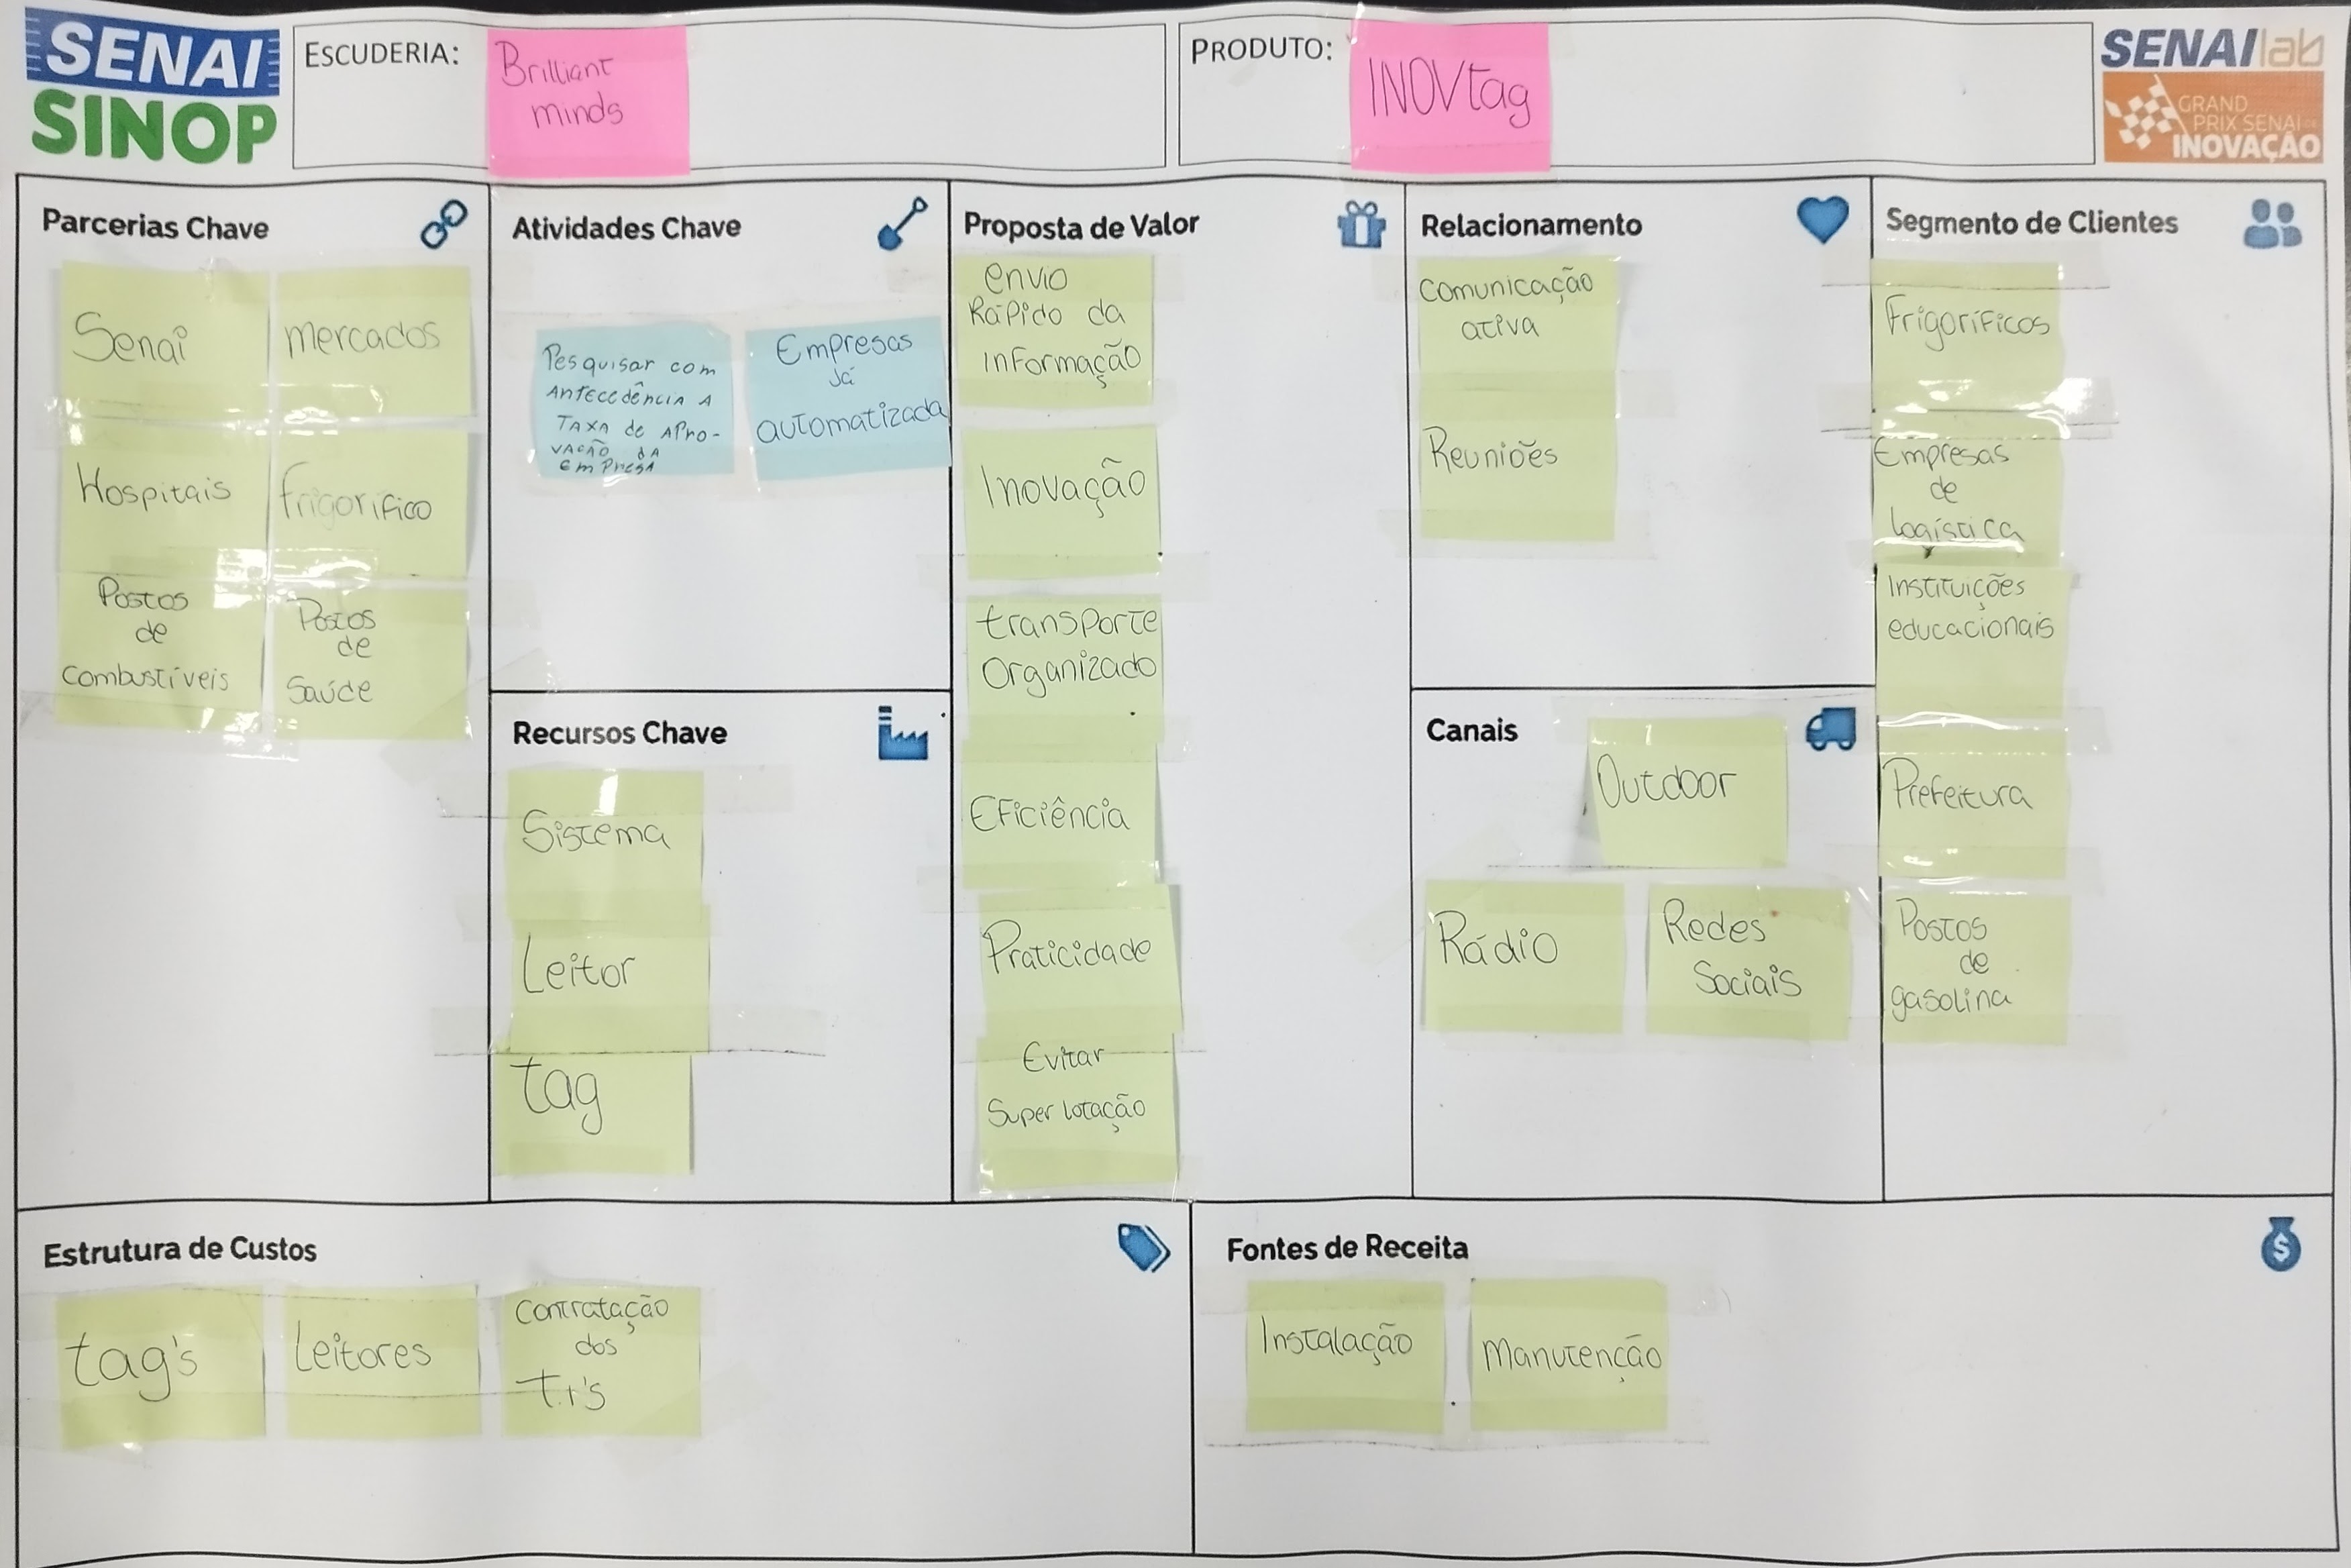 SENAI
SINOP
ESCUDERIA:
Brilliant
minds
PRODUTO:
INOVtag
SENAIlab
GRAND
PRIX SENAI DE
INOVAÇÃO
Parcerias Chave
Senai
mercados
Hospitais
frigorífico
Postos
de
combustíveis
Postos
de
Saúde
Atividades Chave
Pesquisar com
Antecedência A
Taxa de Apro-
vação da
empresa
Empresas
Já
automatizada
Recursos Chave
Sistema
Leitor
tag
Proposta de Valor
envio
Rápido da
informação
Inovação
transporte
Organizado
Eficiência
Praticidade
Evitar
Super lotação
Relacionamento
comunicação
ativa
Reuniões
Canais
Outdoor
Rádio
Redes
Sociais
Segmento de Clientes
Frigoríficos
Empresas
de
logística
Instituições
educacionais
Prefeitura
Postos
de
gasolina
Estrutura de Custos
tag's
Leitores
contratação
dos
T.I's
Fontes de Receita
Instalação
Manutenção